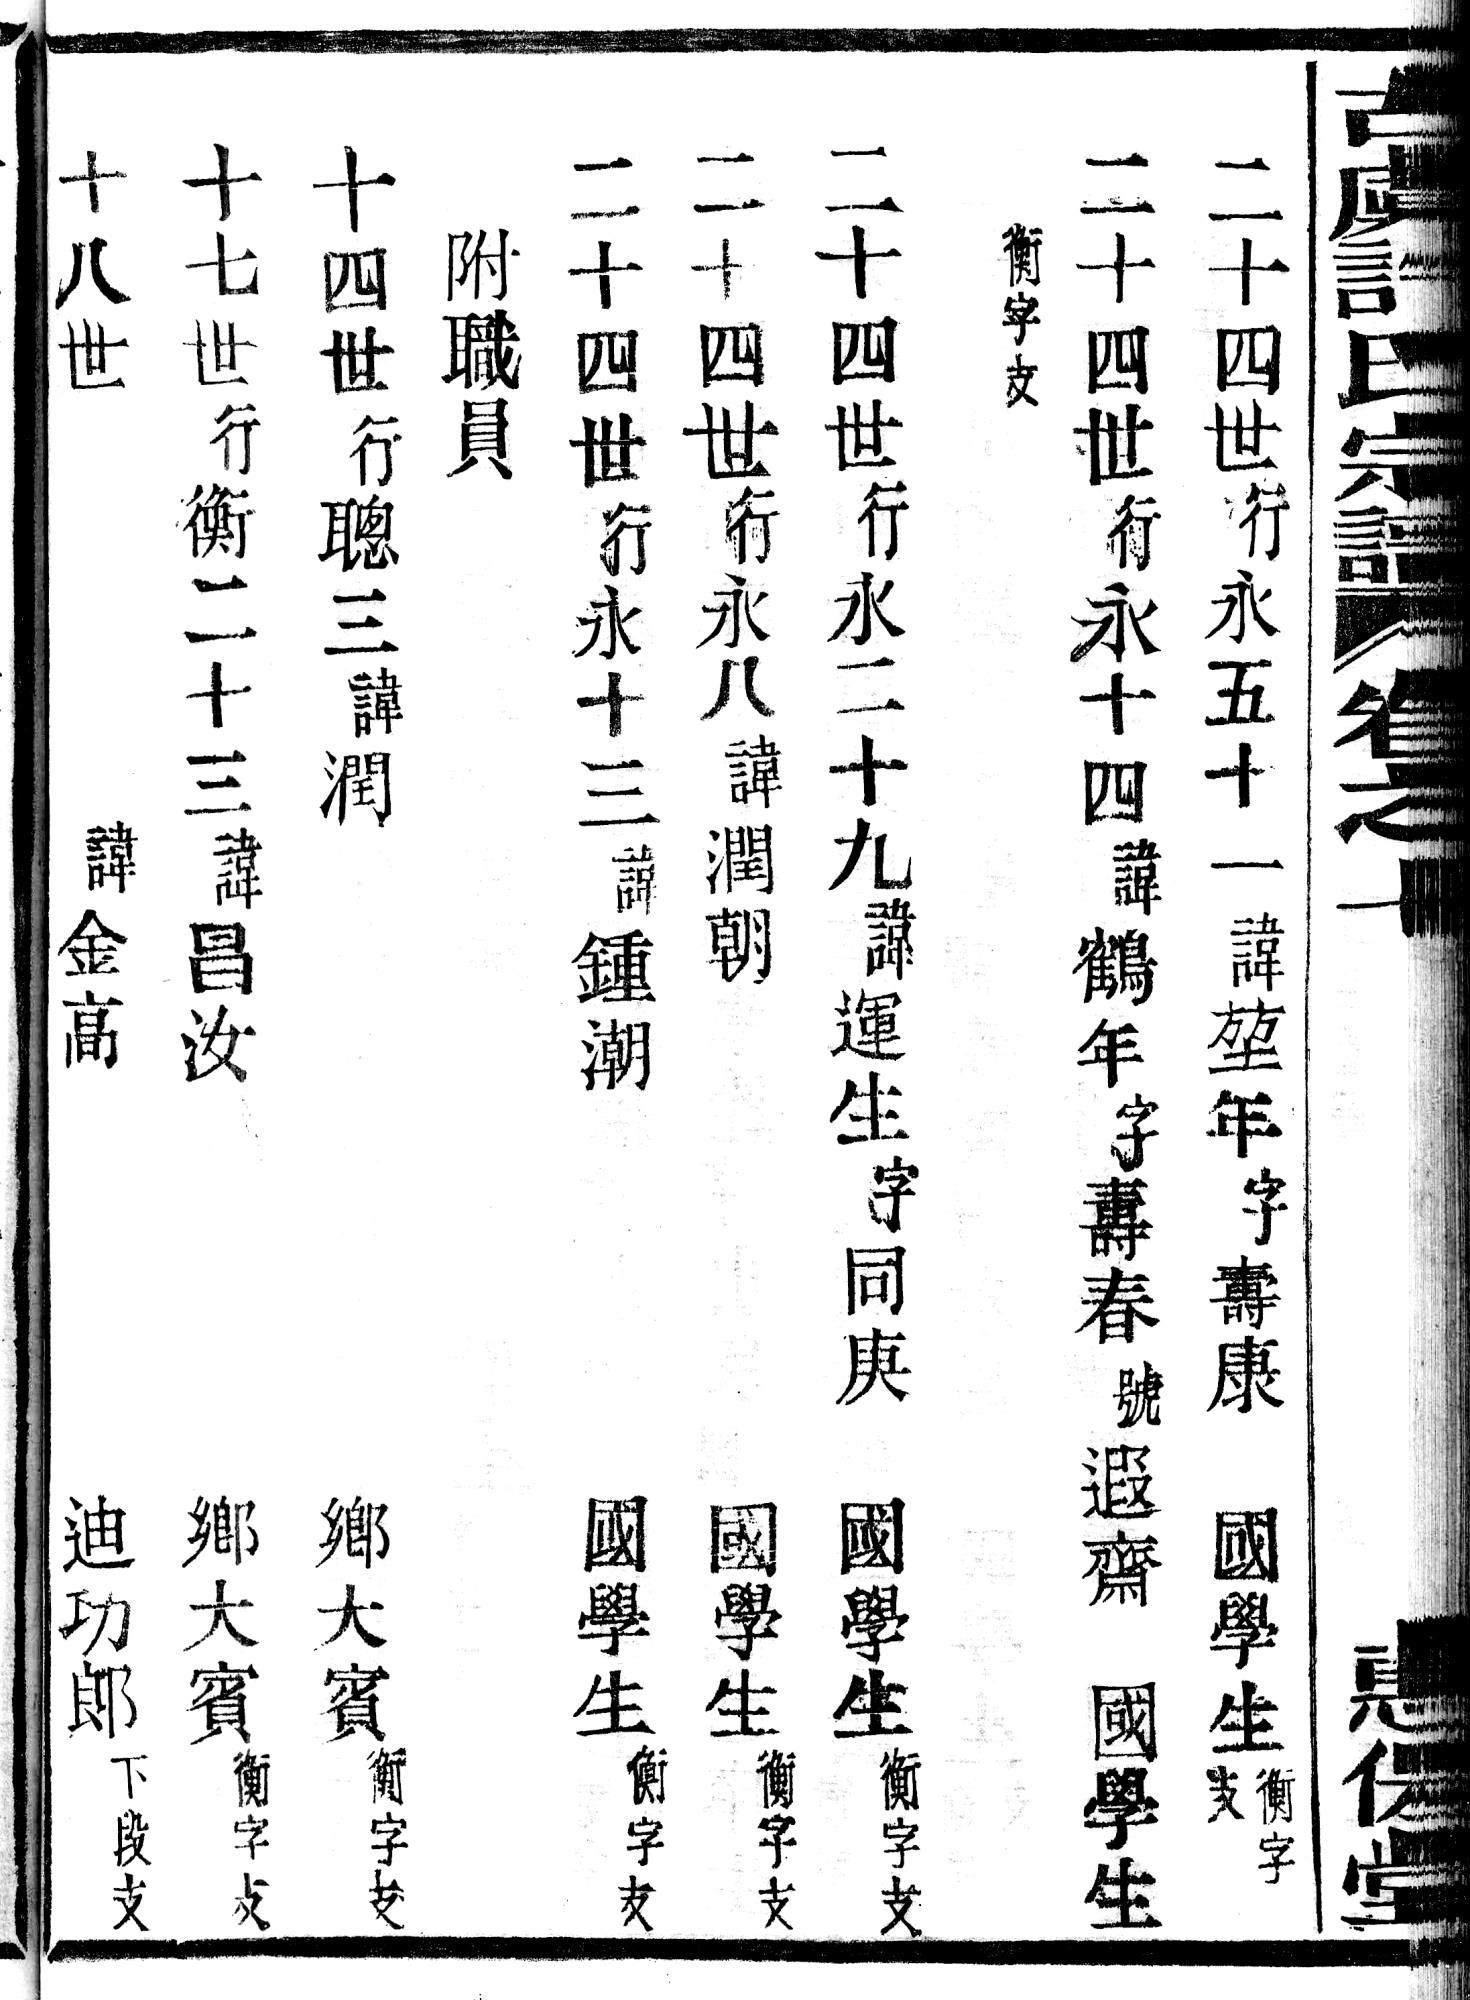 古虞許氏宗譜 卷之 惠倫堂
二十四世行永五十一諱堃年字壽康 國學生衡字支
二十四世行永十四諱鶴年字壽春號遐齋 國學生
衡字支
二十四世行永二十九諱運生字同庚 國學生衡字支
二十四世行永八諱潤朝 國學生衡字支
二十四世行永十三諱鍾潮 國學生衡字支
附職員
十四世行聰三諱潤 鄉大賓衡字支
十七世行衡二十三諱昌汝 鄉大賓衡字支
十八世 諱金高 迪功郎下段支